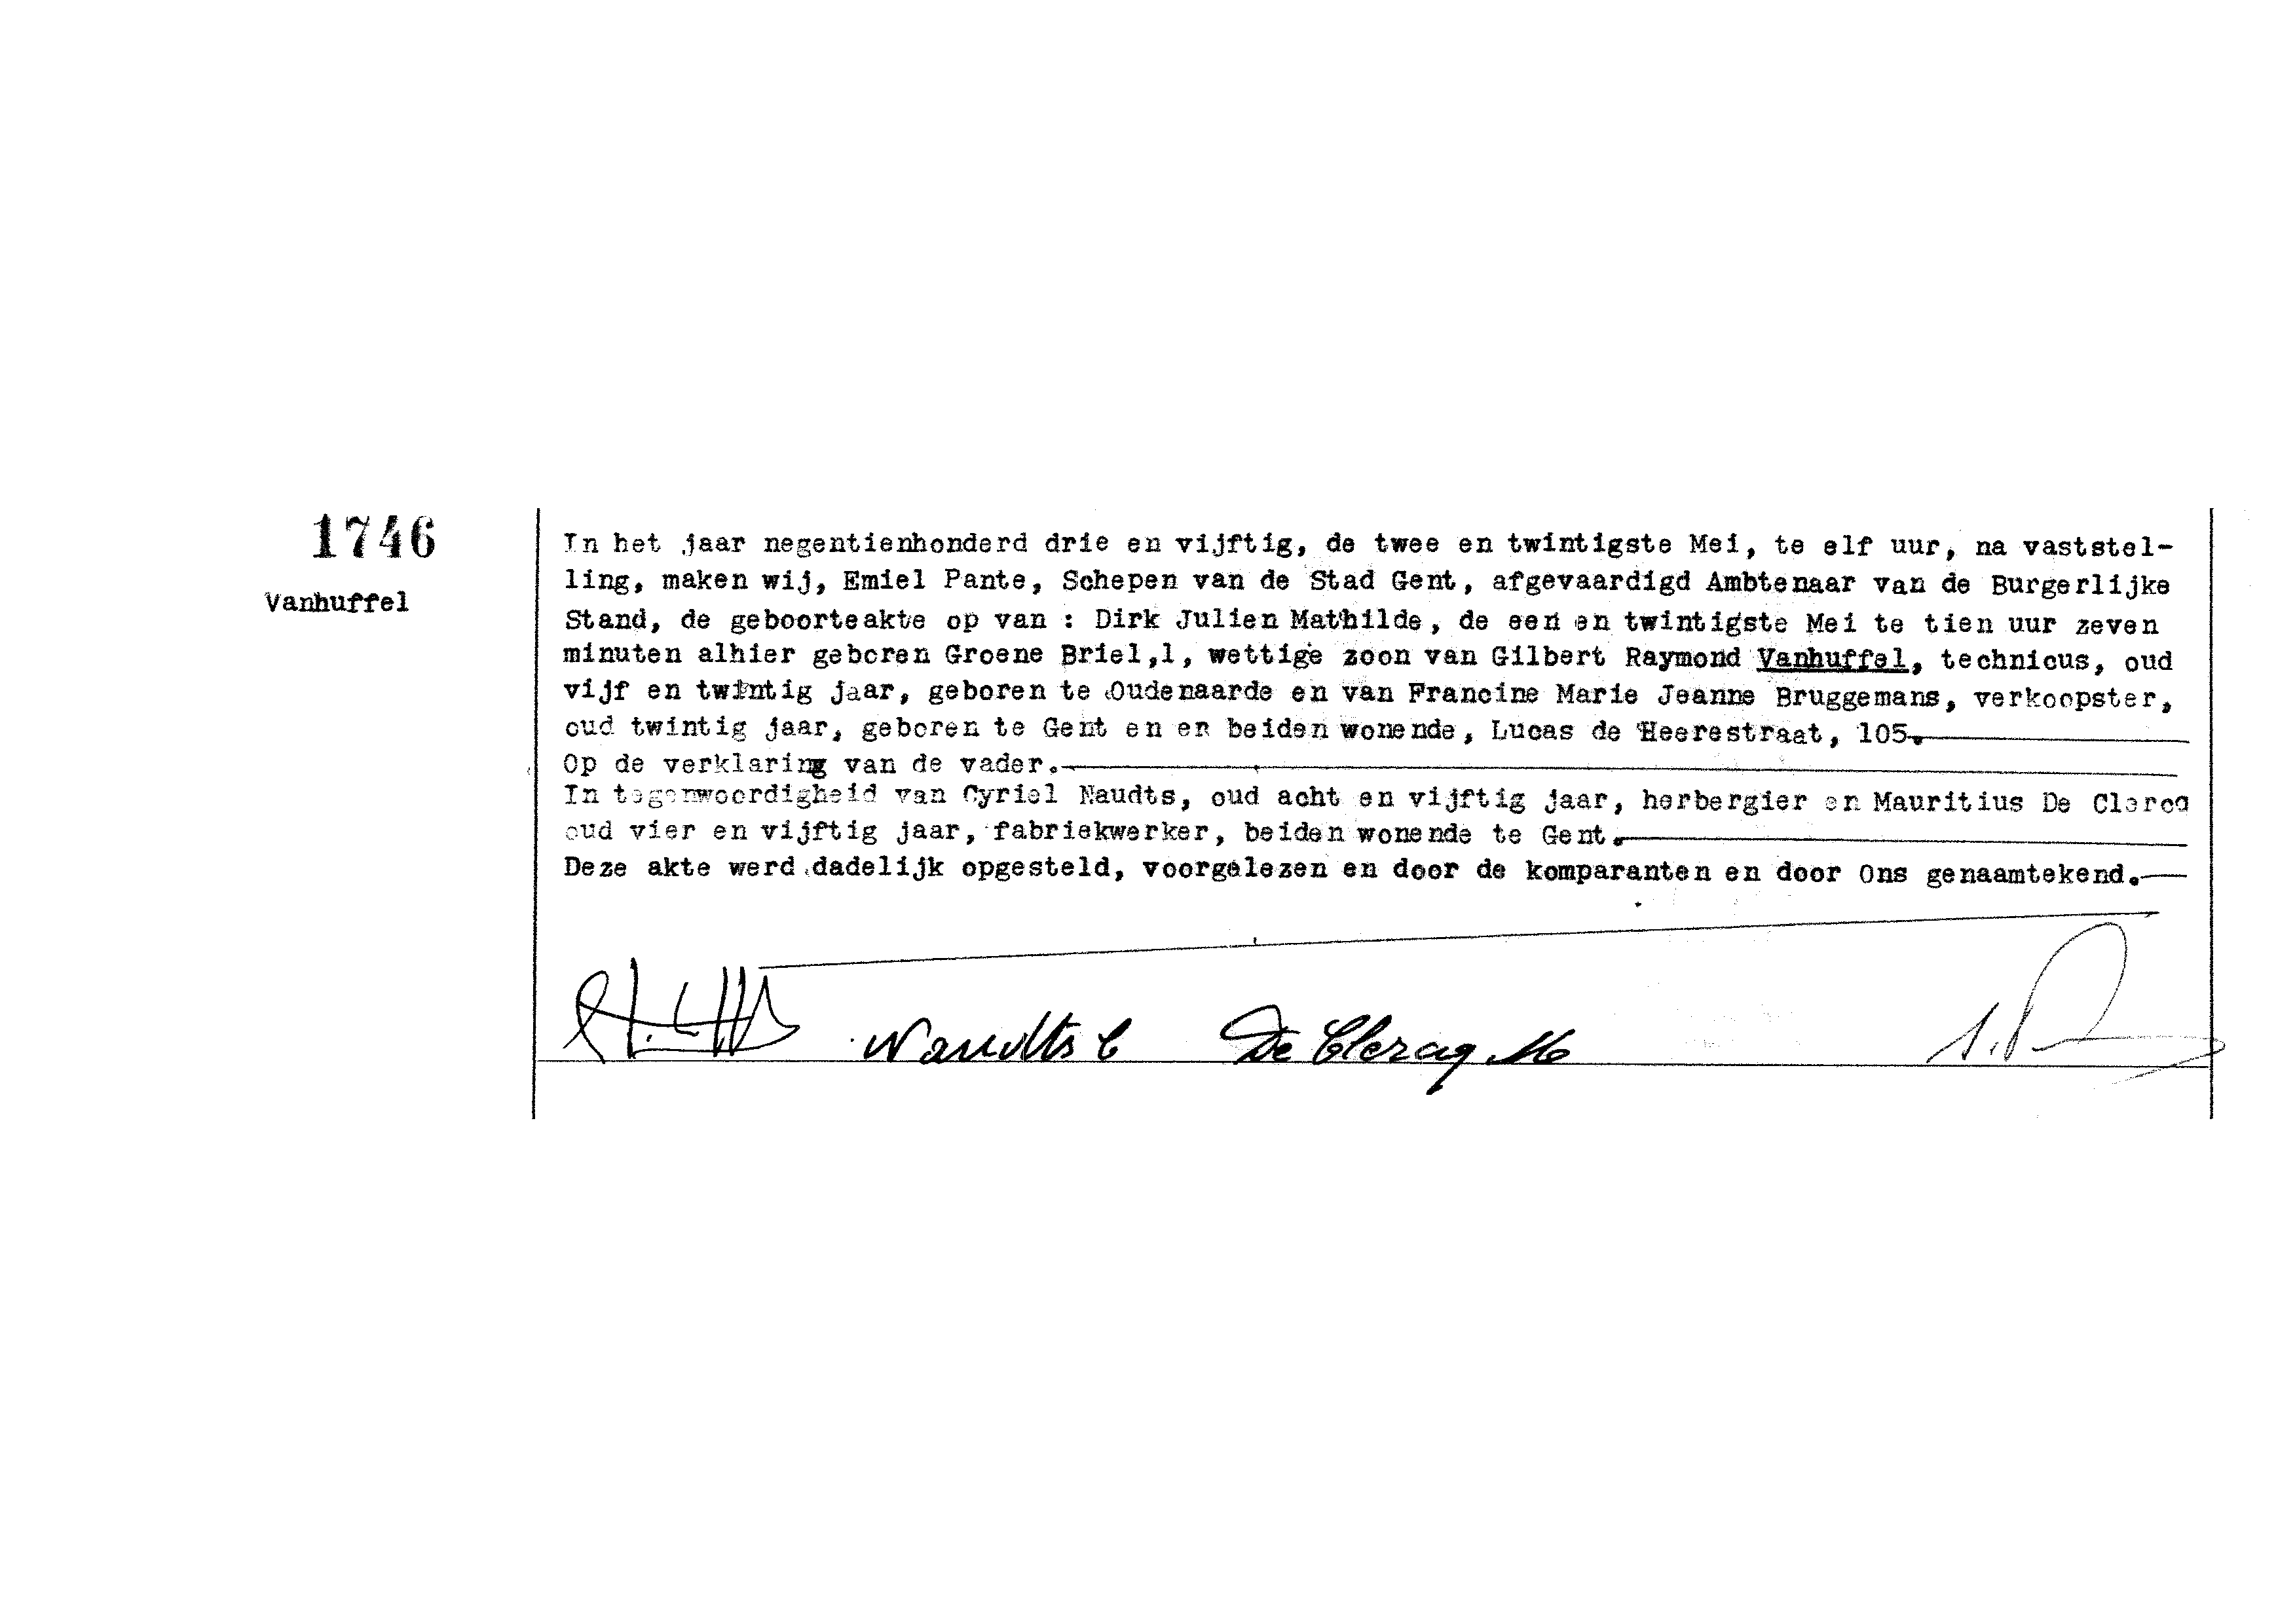 1746
Vanhuffel
In het jaar negentienhonderd drie en vijftig, de twee en twintigste Mei, te elf uur, na vaststel-
ling, maken wij, Emiel Pante, Schepen van de Stad Gent, afgevaardigd Ambtenaar van de Burgerlijke
Stand, de geboorteakte op van : Dirk Julien Mathilde, de een en twintigste Mei te tien uur zeven
minuten alhier geboren Groene Briel,1, wettige zoon van Gilbert Raymond Vanhuffel, technicus, oud
vijf en twintig jaar, geboren te Oudenaarde en van Francine Marie Jeanne Bruggemans, verkoopster,
oud twintig jaar, geboren te Gent en er beiden wonende, Lucas de Heerestraat, 105.
Op de verklaring van de vader.
In tegenwoordigheid van Cyriel Naudts, oud acht en vijftig jaar, herbergier en Mauritius De Clercq
oud vier en vijftig jaar, fabriekwerker, beiden wonende te Gent.
Deze akte werd dadelijk opgesteld, voorgelezen en door de komparanten en door Ons genaamtekend.
Naudts C De Clercq M